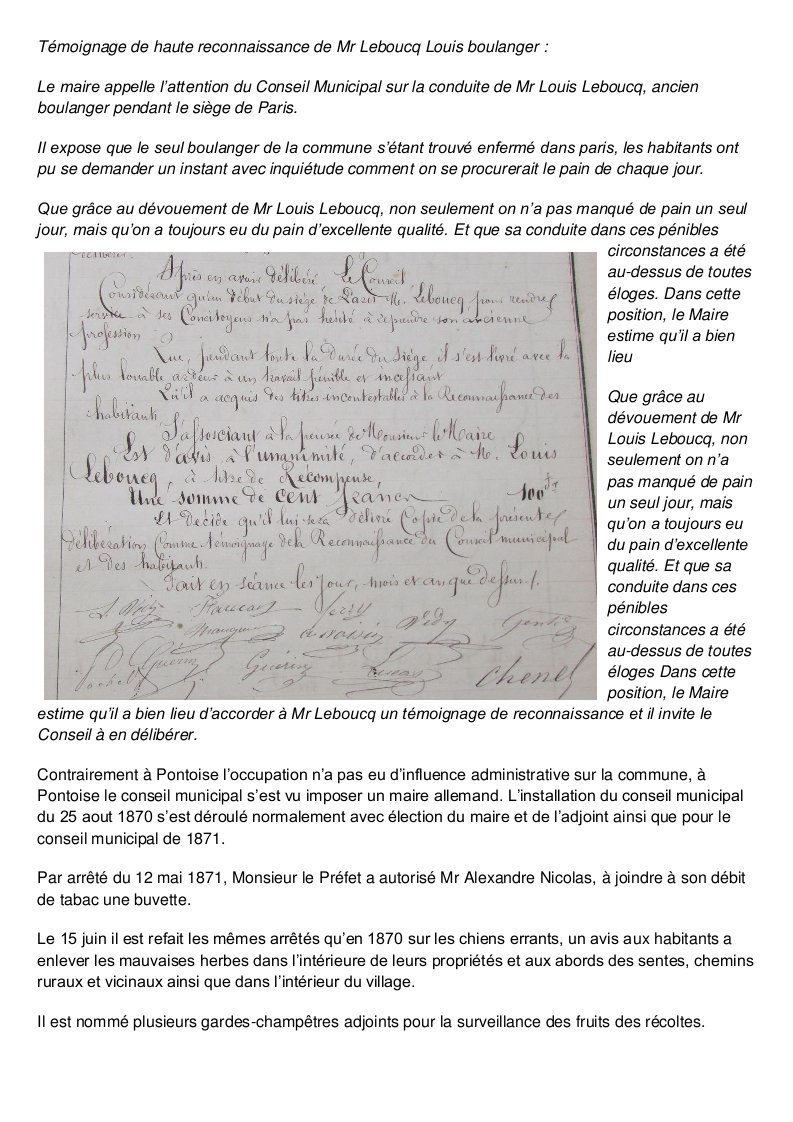 Témoignage de haute reconnaissance de Mr Leboucq Louis boulanger :
Le maire appelle l’attention du Conseil Municipal sur la conduite de Mr Louis Leboucq, ancien
boulanger pendant le siège de Paris.
Il expose que le seul boulanger de la commune s’étant trouvé enfermé dans paris, les habitants ont
pu se demander un instant avec inquiétude comment on se procurerait le pain de chaque jour.
Que grâce au dévouement de Mr Louis Leboucq, non seulement on n’a pas manqué de pain un seul
jour, mais qu’on a toujours eu du pain d’excellente qualité. Et que sa conduite dans ces pénibles
circonstances a été
au-dessus de toutes
éloges. Dans cette
position, le Maire
estime qu’il a bien
lieu
Que grâce au
dévouement de Mr
Louis Leboucq, non
seulement on n’a
pas manqué de pain
un seul jour, mais
qu’on a toujours eu
du pain d’excellente
qualité. Et que sa
conduite dans ces
pénibles
circonstances a été
au-dessus de toutes
éloges Dans cette
position, le Maire
délibérer.
Après en avoir délibéré, Le Conseil
Considérant qu'au début du siège de Paris M. Leboucq, pour rendre
service à ses Concitoyens n'a pas hésité à reprendre son ancienne
profession
Que, pendant toute la durée du Siège il s'est livré avec la
plus louable ardeur à un travail pénible et incessant
Qu'il a acquis des titres incontestables à la Reconnaissance des
habitants
S'associant à la pensée de Monsieur le Maire
Est d'avis à l'unanimité, d'accorder à M. Louis
Leboucq, à titre de Récompense,
Une somme de cent francs 100 fr
Et Décide qu'il lui sera délivré Copie de la présente
délibération Comme témoignage de la Reconnaissance du Conseil municipal
et des habitants.
Fait en séance les jour, mois et an que dessus /.
Guérin
Chenel
estime qu’il a bien lieu d’accorder à Mr Leboucq un témoignage de reconnaissance et il invite le
Conseil à en délibérer.
Contrairement à Pontoise l’occupation n’a pas eu d’influence administrative sur la commune, à
Pontoise le conseil municipal s’est vu imposer un maire allemand. L’installation du conseil municipal
du 25 aout 1870 s’est déroulé normalement avec élection du maire et de l’adjoint ainsi que pour le
conseil municipal de 1871.
Par arrêté du 12 mai 1871, Monsieur le Préfet a autorisé Mr Alexandre Nicolas, à joindre à son débit
de tabac une buvette.
Le 15 juin il est refait les mêmes arrêtés qu’en 1870 sur les chiens errants, un avis aux habitants a
enlever les mauvaises herbes dans l’intérieure de leurs propriétés et aux abords des sentes, chemins
ruraux et vicinaux ainsi que dans l’intérieur du village.
Il est nommé plusieurs gardes-champêtres adjoints pour la surveillance des fruits des récoltes.